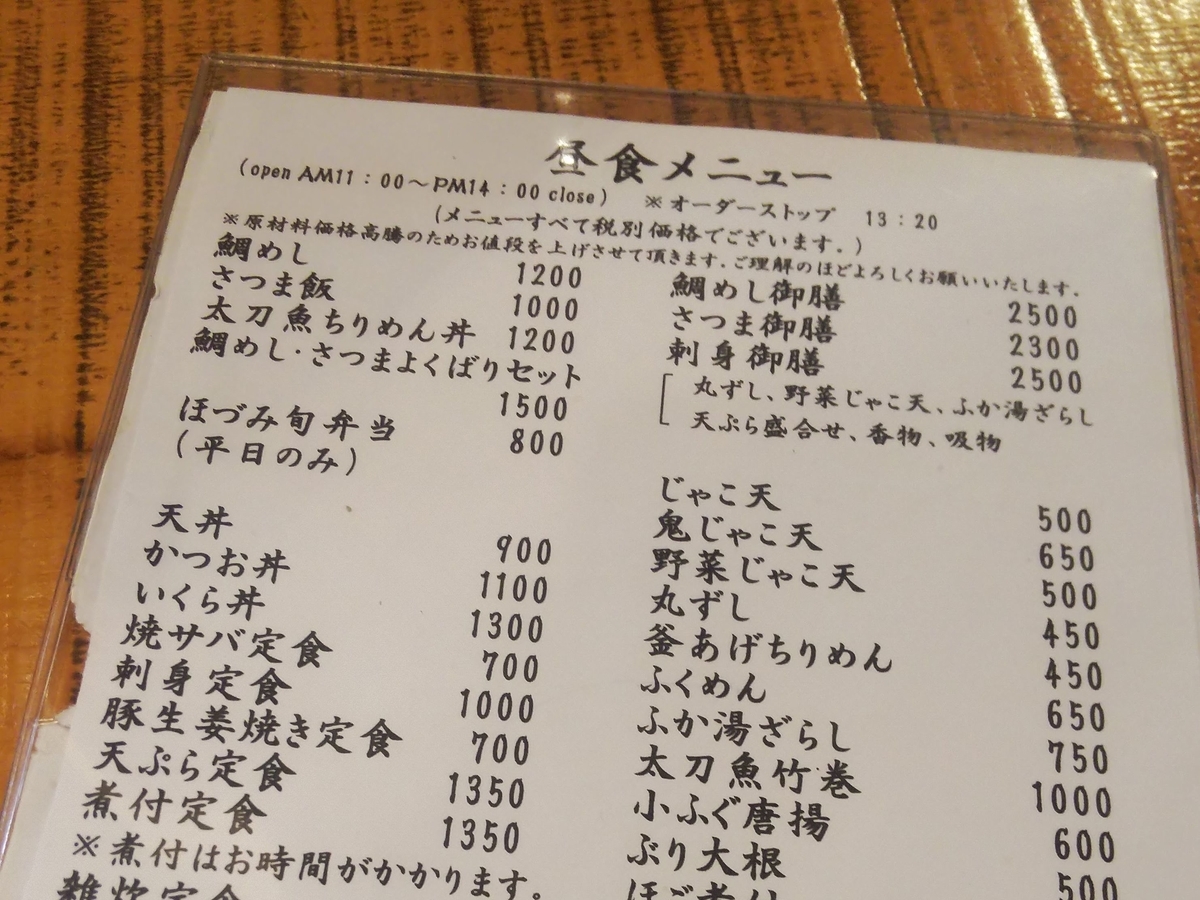 昼食メニュー
(open AM11：00～PM14：00 close) ※オーダーストップ 13：20
(メニューすべて税別価格でございます.)
※原材料価格高騰のためお値段を上げさせて頂きます.ご理解のほどよろしくお願いいたします.
鯛めし 1200
さつま飯 1000
太刀魚ちりめん丼 1200
鯛めし・さつまよくばりセット
1500
ほづみ旬弁当 800
(平日のみ)
天丼 900
かつお丼 1100
いくら丼 1300
焼サバ定食 700
刺身定食 1000
豚生姜焼き定食 700
天ぷら定食 1350
煮付定食 1350
※煮付はお時間がかかります。
雑炊定食
鯛めし御膳 2500
さつま御膳 2300
刺身御膳 2500
丸ずし、野菜じゃこ天、ふか湯ざらし
天ぷら盛合せ、香物、吸物
じゃこ天 500
鬼じゃこ天 650
野菜じゃこ天 500
丸ずし 450
釜あげちりめん 450
ふくめん 650
ふか湯ざらし 750
太刀魚竹巻 1000
小ふぐ唐揚 600
ぶり大根 500